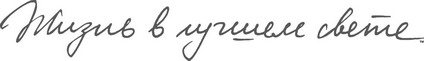 Жизнь в лучшем свете.